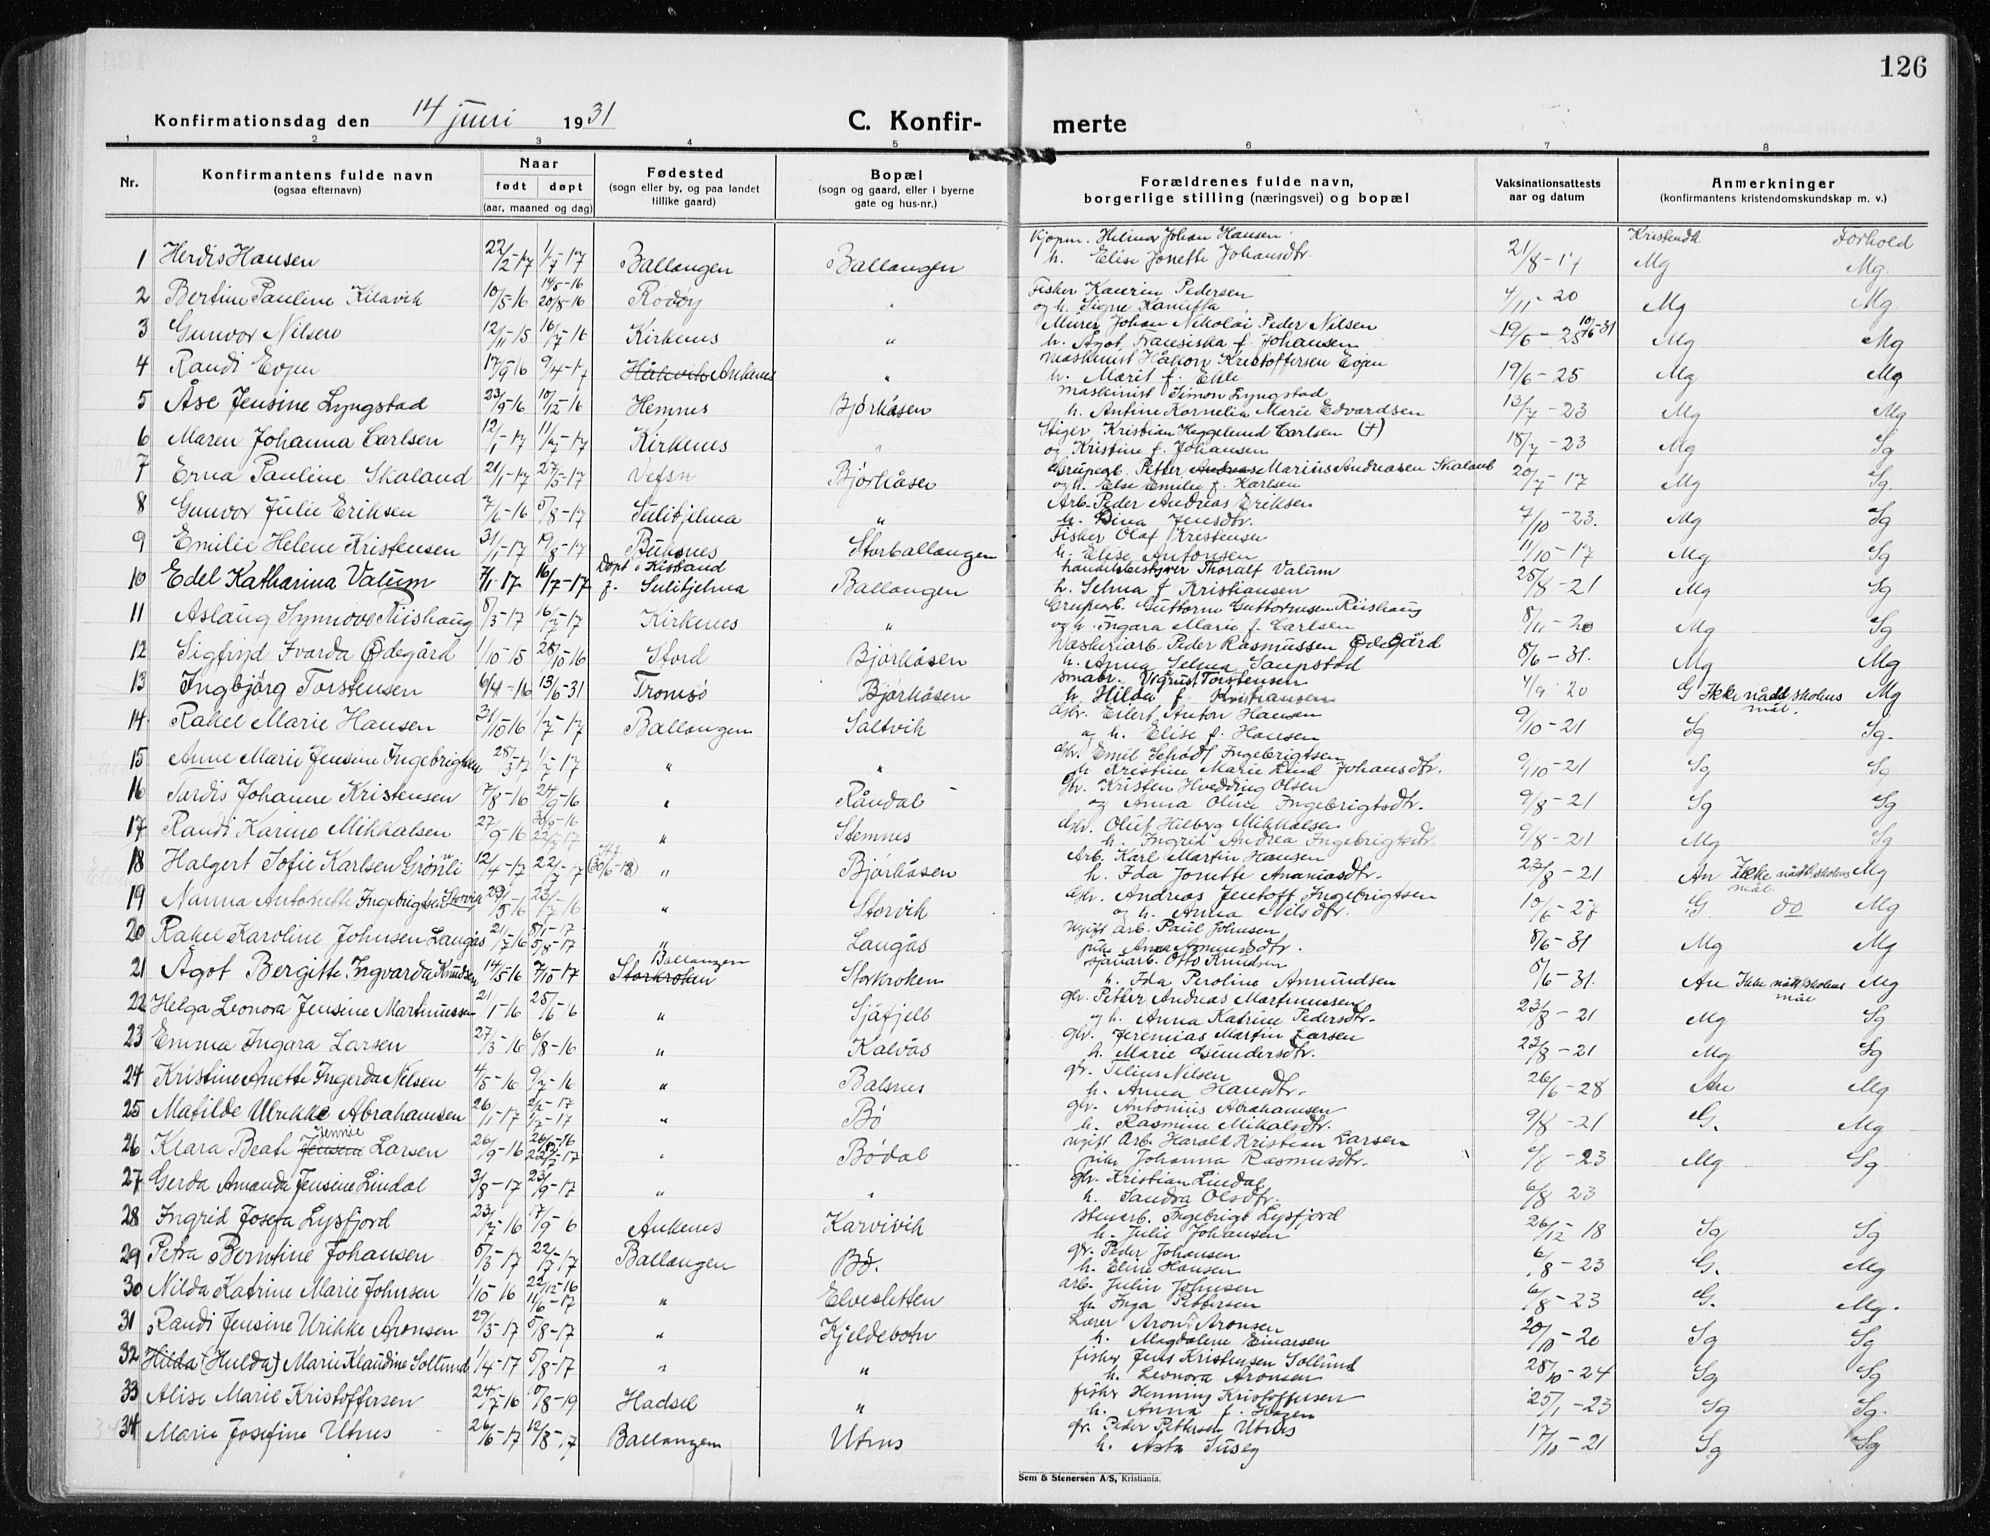 126
Konfirmationsdag den 14 juni 1931
C. Konfirmerte
1 2 3 4 5 6 7 8
Nr. Konfirmantens fulde navn (ogsaa efternavn) Naar født døpt (aar, maaned og dag) Fødested (sogn eller by, og paa landet tillike gaard) Bopæl (sogn og gaard, eller i byerne gate og hus-nr.) Forældrenes fulde navn, borgerlige stilling (næringsvei) og bopæl Vaksinationsattests aar og datum Anmerkninger (konfirmantens kristendomskundskap m. v.)
Kristendk Forhold
1 Herdis Hansen 22/2-17 1/7-17 Ballangen Ballangen Kjøpm. Hilmar Johan Hansen h. Elise Jonette Johansdtr. 21/8-17 Mg Mg.
2 Bertine Pauline Kilavik 10/5-16 14/5-16 20/8-16 Rødøy " Fisker Kaurin Pedersen og h. Signe Kanutta 4/11-20 Mg Mg.
3 Gunvor Nilsen 12/11-15 16/7-16 Kirkenes " Murer Johan Nikolai Peder Nilsen h. Agot Fransiska f. Johansen 19/6-25 10/6-31 Mg Mg
4 Randi Evjen 17/9-16 9/4-17 Håkvik Ankenes " Maskinist Håkon Kristoffersen Evjen h. Marit f. Ekle 19/6-25 Mg Mg
5 Åse Jensine Lyngstad 23/9-16 10/12-16 Hemnes Bjørkåsen Maskinist Simon Lyngstad h. Antine Kornelia Marie Edvardsen 13/7-23 Mg Mg
6 Maren Johanna Carlsen 12/1-17 11/7-17 Kirkenes " Stiger Kristian Heggelund Carlsen (+) og Kristine f. Johansen 18/7-23 Mg Sg
7 Erna Pauline Skaland 21/1-17 27/5-17 Vefsn Bjørkåsen Grubearb. Petter Andreas Marius Andreasen Skaland og h. Else Emilie f. Karlsen 20/7-17 Mg Sg.
8 Gunvor Julie Eriksen 7/6-16 5/8-17 Sulitjelma " Arb. Peder Andreas Eriksen h. Dina Jensdtr. 7/10-23. Mg Sg
9 Emilie Helene Kristensen 31/1-17 19/8-17 Buksnes Storballangen Fisker Olaf Kristensen h. Elise Antonsen 11/10-17 Mg Sg
10 Edel Katharina Valum 7/1-17 16/7-17 Døpt i Kistrand f. Sulitjelma Ballangen handelsbestyrer Thoralf Valum h. Selma f. Kristiansen 25/8-21 Mg Sg
11 Aslaug Synnøve Riishaug 8/3-17 16/7-17 Kirkenes " Grubearb. Guttorm Guttormsen Riishaug og h. Ingara Marie f. Carlsen 8/11-20 Mg Sg
12 Sigfrid Ivarda Ødegård 1/10-15 28/10-16 Stord Bjørkåsen Vaskeriarb. Peder Rasmussen Ødegård h. Anna Selma Sanpstad 8/6-31. Mg Mg
13 Ingbjørg Torstensen 6/4-16 13/6-31 Tromsø Bjørkåsen smabr. August Torstensen h. Hilda f. Kristiansen 4/9-20 G Ikke nådd skolens mål. Mg
14 Rakel Marie Hansen 31/10-16 1/7-17 Ballangen Saltvik Gbr. Eilert Anton Hansen og h. Elise f. Hansen 9/10-21 Sg Sg.
15 Anne Marie Jensine Ingebrigtsen 28/3-17 1/7-17 " " Gbr. Emil Schødt Ingebrigtsen h. Kristine Marie Lind Johansdtr. 9/10-21 Sg Sg
16 Tordis Johanne Kristensen 7/8-16 24/9-16 " Råndal Gbr. Kristen Hvedding Olsen og Anna Oline Ingebrigtsdtr. 9/8-21 Sg Sg
17 Randi Karine Mikkalsen 27/9-16 22/7-17 " Stemnes Gbr. Oluf Hilberg Mikkalsen h. Ingrid Andrea Ingebrigtsdtr. 9/8-21 Mg Sg
18 Halgert Sofie Karlsen Grønli 12/4-17 22/7-17 (30/6-18) " Bjørkåsen Arb. Karl Martin Hansen h. Ida Jonette Ananiasdtr. 23/8-21 An Ikke nådd skolens mål. Mg
19 Nanna Antonette Ingebrigtsen Storvik 29/5-16 23/7-16 " Storvik Gbr. Andreas Jentoft Ingebrigtsen og h. Anna Nilsdtr. 10/6-27 G. do Mg
20 Rakel Karoline Johnsen Langås 21/7-16 8/1-17 5/8-17 " Langås Ugift arb. Paul Johnsen pike Anna Amundsdtr. 8/6-31 Mg Mg
21 Ågot Bergitte Ingvarda Knudsen 14/5-16 7/10-17 Ballangen Storkroken Storkroken sjauarb. Otto Knudsen h. Ida Peroline Amundsen 8/6-31. An Ikke nådd skolens mål Mg
22 Helga Leonora Jensine Martinussen 21/1-16 25/6-16 " Sjåfjell gbr. Petter Andreas Martinussen og h. Anna Katrine Pedersdtr. 23/8-21 Mg Sg
23 Emma Ingara Larsen 27/3-16 6/8-16 " Kalvås gbr. Jeremias Martin Larsen h. Marie Gundersdtr. 23/8-21 Mg Sg
24 Kristine Anette Ingerda Nilsen 4/5-16 9/7-16 " Balsnes gbr. Tilius Nilsen h. Anna Hansdtr. 26/6-28 An Mg
25 Matilde Ulrikke Abrahamsen 26/1-17 2/2-17 1/7-17 " Bø gbr. Antonius Abrahamsen h. Rasmine Mikalsdtr. 9/8-21 G. Mg
26 Klara Beate Jensine Jennie Larsen 26/9-16 22/7-17 " Bødal ugift Arb. Harald Kristian Larsen pike Johanna Rasmusdtr. 6/8-23 Mg Sg
27 Gerda Amanda Jensine Lindal 3/8-17 23/9-17 " " gbr. Kristian Lindal h. Sandra Olsdtr. 6/8-23
28 Ingrid Josefa Lysfjord 23/7-16 17/9-6 Ankenes Karvivik stenarb. Ingebrigt Lysfjord h. Julie Johansen 26/12-18 Sg Sg
29 Petra Berntine Johansen 5/3-17 22/7-17 Ballangen Bø. gbr. Peder Johansen h. Eline Hansen 6/8-23 G. Mg
30 Nilda Katrine Marie Johnsen 1/10-16 22/12-16 11/6-17 " Elvesletten arb. Julin Johnsen h. Inga Pettersen 6/8-23 G. Mg.
31 Randi Jensine Ulrikke Aronsen 29/3-17 5/8-17 " Kjeldebotn Lærer Aron Aronsen h. Magdalene Einarsen 20/10-20 Sg Sg
32 Hilda (Hulda) Marie Klaudine Sollund 1/4-17 5/8-17 " " fisker Jens Kristensen Sollund h. Leonora Aronsen 28/10-24 Sg Sg
33 Alise Marie Kristoffersen 24/7-16 10/8-19 Hadsel " fisker Henning Kristoffersen h. Anna f. Hagen 25/1-23 Sg Sg.
34 Marie Josefine Utnes 26/6-17 12/8-17 Ballangen Utnes gbr. Peder Pettersen Utnes h. Asta Suseg 17/10-21 Sg Sg
Sem & Stenersen A/S, Kristiania.